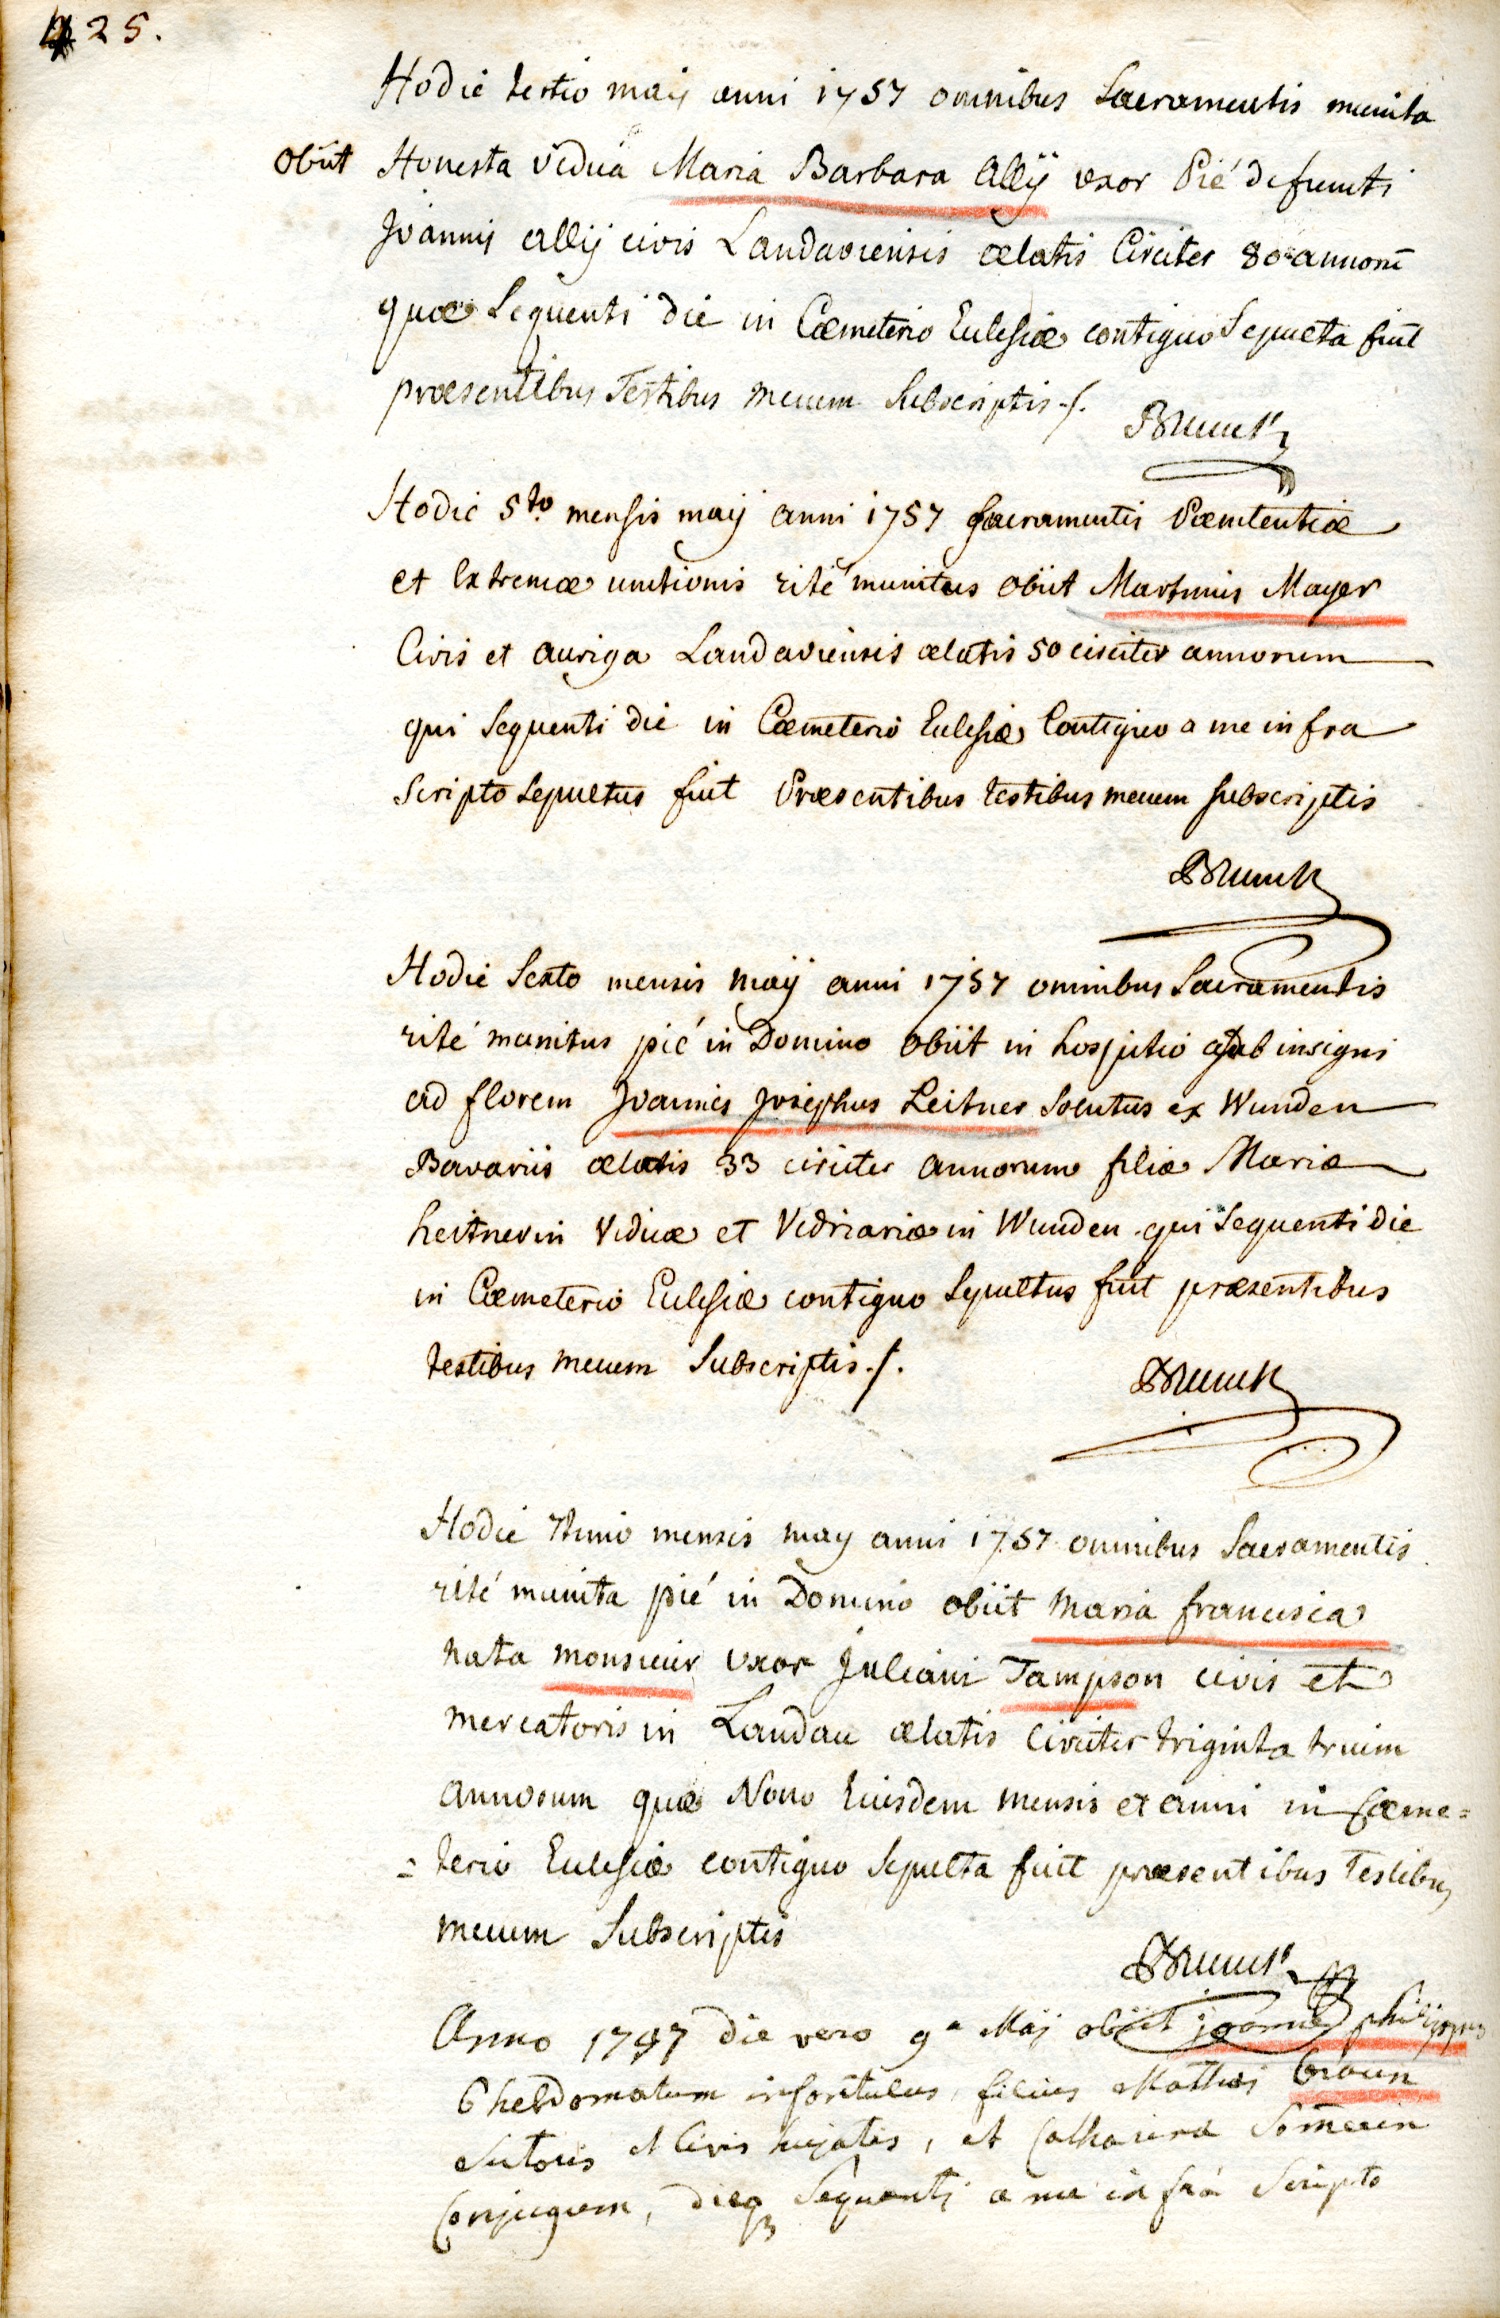 425.
Hodie tertio maij anni 1757 omnibus Sacramentis munita
obiit Honesta vidua Maria Barbara Allÿ uxor Pié defuncti
Joannis Allÿ civis Landaviensis ætatis Circiter 80 annorū
quæ Sequenti die in Cœmeterio Ecclesiæ contiguo Sepulta fuit
præsentibus Testibus mecum Subscriptis ./.
Brunck
Hodie 5to mensis maij anni 1757 Sacramentis Pœnitentiæ
et Extremæ unctionis rité munitus obiit Martinus Mayer
Civis et auriga Landaviensis ætatis 50 circiter annorum
qui Sequenti die in Cœmeterio Ecclesiæ Contiguo a me infra
Scripto Sepultus fuit Præsentibus testibus mecum subscriptis
Brunck
Hodie Sexto mensis maij anni 1757 omnibus Sacramentis
rité munitus pié in Domino obiit in hospitio sub insigni
ad florem Joannes Josephus Leitner Solutus ex Wunden
Bavariis ætatis 33 circiter annorum filiæ Mariæ
Leitnerin Viduæ et Vidriariæ in Wunden qui Sequenti die
in Cœmeterio Ecclesiæ contiguo Sepultus fuit præsentibus
testibus mecum Subscriptis ./.
Brunck
Hodie 7timo mensis may anni 1757 omnibus Sacramentis
rité munita pié in Domino obiit Maria francisca
nata monsieur uxor Juliani Tampson civis et
mercatoris in Landau ætatis Circiter triginta trium
annorum quæ Nono Eiusdem mensis et anni in Cœme=
=terio Ecclesiæ contiguo Sepulta fuit præsentibus Testibus
mecum Subscriptis
Brunck
Anno 1747 die vero 9a Maij obiit joannes philippus
6 hebdomatum infantulus, filius Mathei Braun
Sutoris et Civis hujatis, et Catharina
Conjugum, dieq3 Sequenti a me infrà Scripto